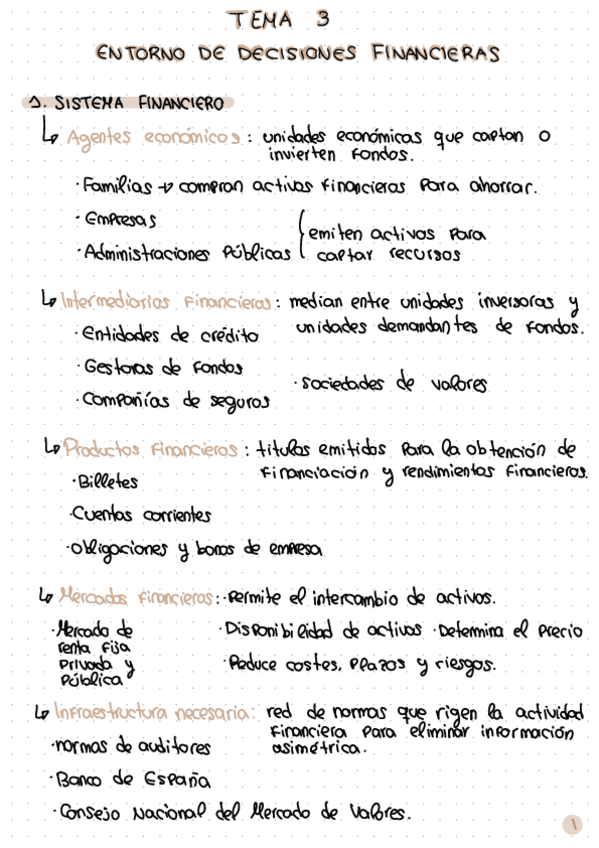 TEMA 3
ENTORNO DE DECISIONES FINANCIERAS
1. SISTEMA FINANCIERO
↳ Agentes económicos: unidades económicas que captan o
invierten fondos.
· Familias → compran activos financieros para ahorrar.
· Empresas
· Administraciones Públicas { emiten activos para
captar recursos
↳ Intermediarios financieros: median entre unidades inversoras y
unidades demandantes de fondos.
· Entidades de crédito
· Gestoras de fondos
· Sociedades de valores
· Compañías de seguros
↳ Productos financieros: titulos emitidos para la obtención de
financiación y rendimientos financieros.
· Billetes
· Cuentas corrientes
· Obligaciones y bonos de empresa
↳ Mercados financieros: · Permite el intercambio de activos.
· Mercado de
renta fija
privada y
pública
· Disponibilidad de activos · Determina el precio
· Reduce costes, plazos y riesgos.
↳ Infraestructura necesaria: red de normas que rigen la actividad
financiera para eliminar información
asimétrica.
· normas de auditores
· Banco de España
· Consejo Nacional del Mercado de Valores.
1